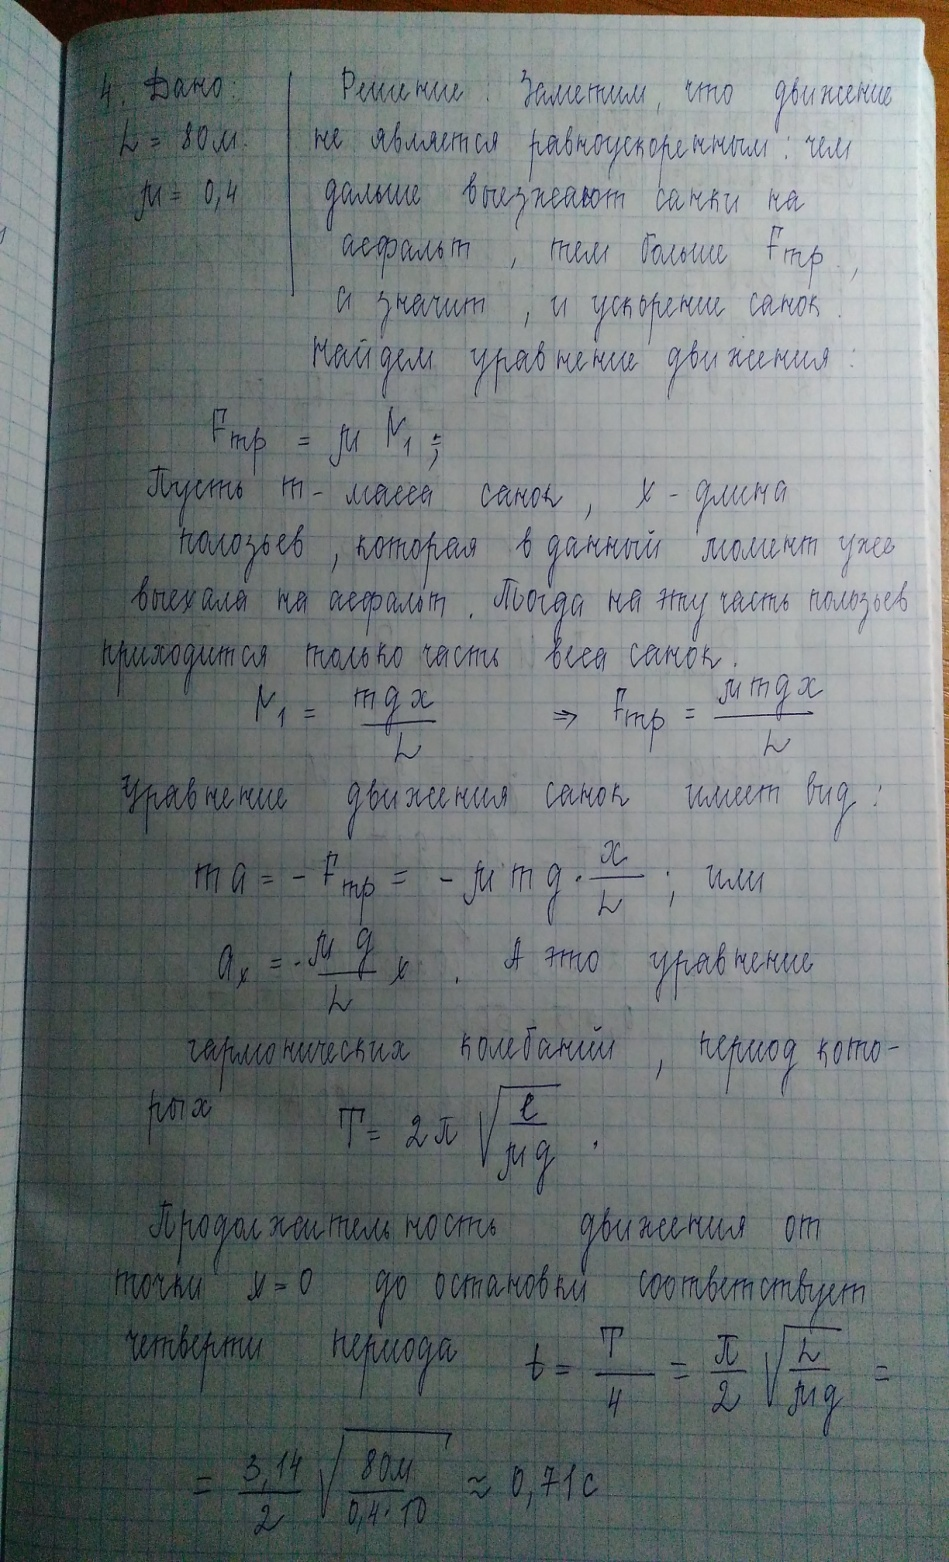 4. Дано: Решение. Заметим, что движение
L = 80м. не является равноускоренным: чем
μ = 0,4 дальше выезжают санки на
асфальт, тем больше Fтр.,
а значит, и ускорение санок.
Найдем уравнение движения:
Fтр = μ N₁;
Пусть m - масса санок, x - длина
полозьев, которая в данный момент уже
выехала на асфальт. Тогда на эту часть полозьев
приходится только часть веса санок.
N₁ = mgx/L ⇒ Fтр = μmgx/L
Уравнение движения санок имеет вид:
ma = - Fтр = - μmg · x/L ; или
aₓ = - μg/L x. А это уравнение
гармонических колебаний, период кото-
рых T = 2π √(l/μg).
Продолжительность движения от
точки x=0 до остановки соответствует
четверти периода t = T/4 = π/2 √(L/μg) =
= 3,14/2 √(80м/0,4·10) ≈ 0,71с